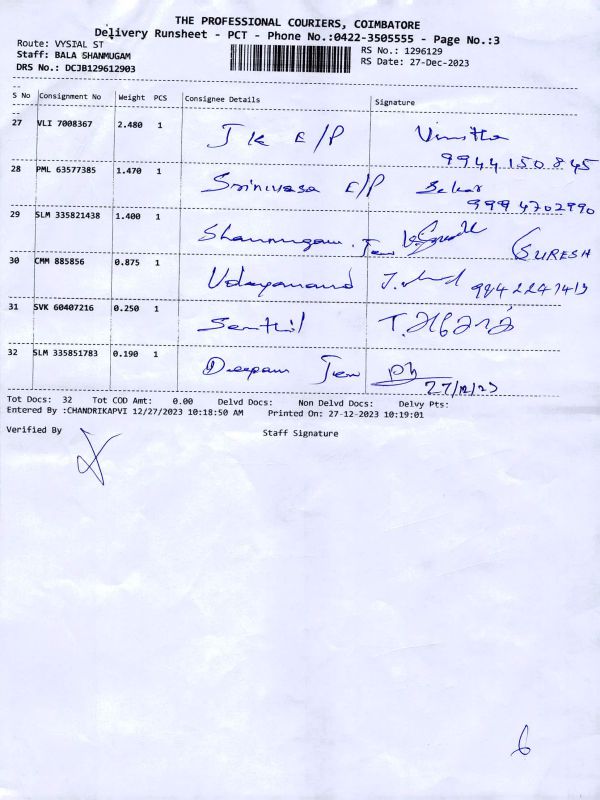 THE PROFESSIONAL COURIERS, COIMBATORE
Delivery Runsheet - PCT - Phone No.:0422-3505555 - Page No.:3
Route: VYSIAL ST
RS No.: 1296129
Staff: BALA SHANMUGAM
RS Date: 27-Dec-2023
DRS No.: DCJB129612903
S No Consignment No Weight PCS Consignee Details Signature
27 VLI 7008367 2.480 1 J K E/P
9944150845
28 PML 63577385 1.470 1 Srinivasa E/P Sekar
9994702990
29 SLM 335821438 1.400 1 Shanmugam. (SURESH
30 CMM 885856 0.875 1 Udayanand
31 SVK 60407216 0.250 1 Senthil T.
32 SLM 335851783 0.190 1 Deepam
27/12/23
Tot Docs: 32 Tot COD Amt: 0.00 Delvd Docs: Non Delvd Docs: Delvy Pts:
Entered By :CHANDRIKAPVI 12/27/2023 10:18:50 AM Printed On: 27-12-2023 10:19:01
Verified By Staff Signature
6